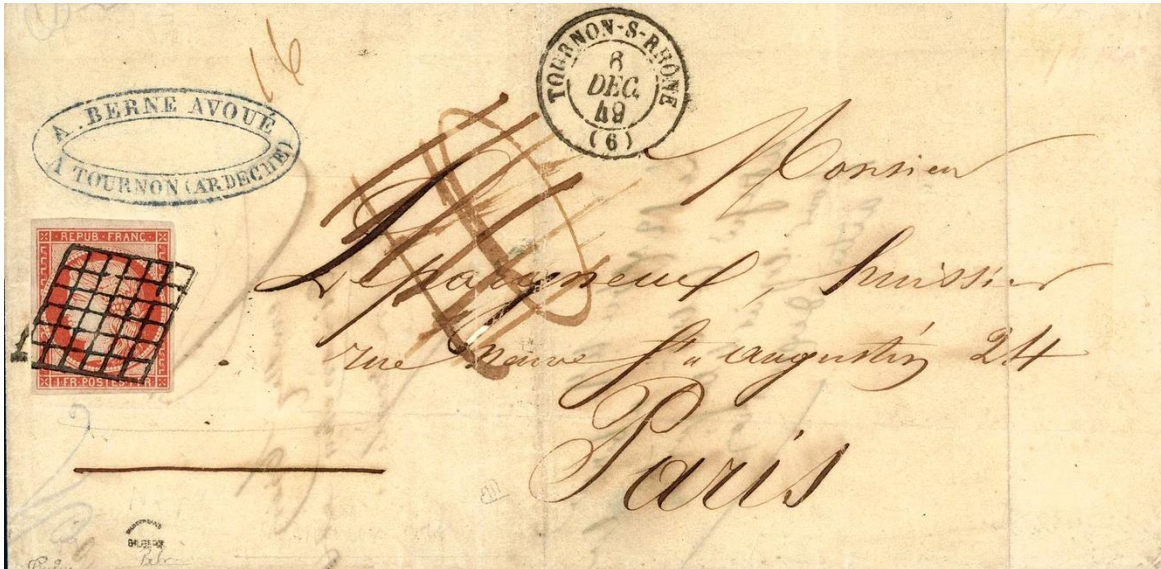 16
A. BERNE AVOUÉ
A TOURNON (ARDECHE)
TOURNON-S-RHÔNE
6
DEC.
49
(6)
REPUB·FRANC·
1·FR·POSTES·1·FR
Monsieur
Lepargneux, huissier
rue Neuve St augustin 24
Paris